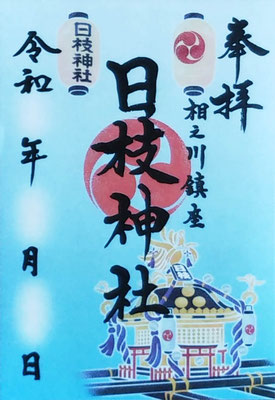 奉拝
相之川鎮座
日枝神社
日枝神社
令和 年 月 日